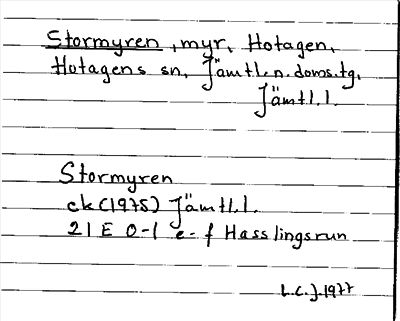 Stormyren, myr, Hotagen,
Hotagens sn, Jämtl.n.doms.tg,
Jämtl.l.
Stormyren
ck(1975) Jämtl.l.
21E 0-1 e-f Hasslingsrun
L.C.J.1977